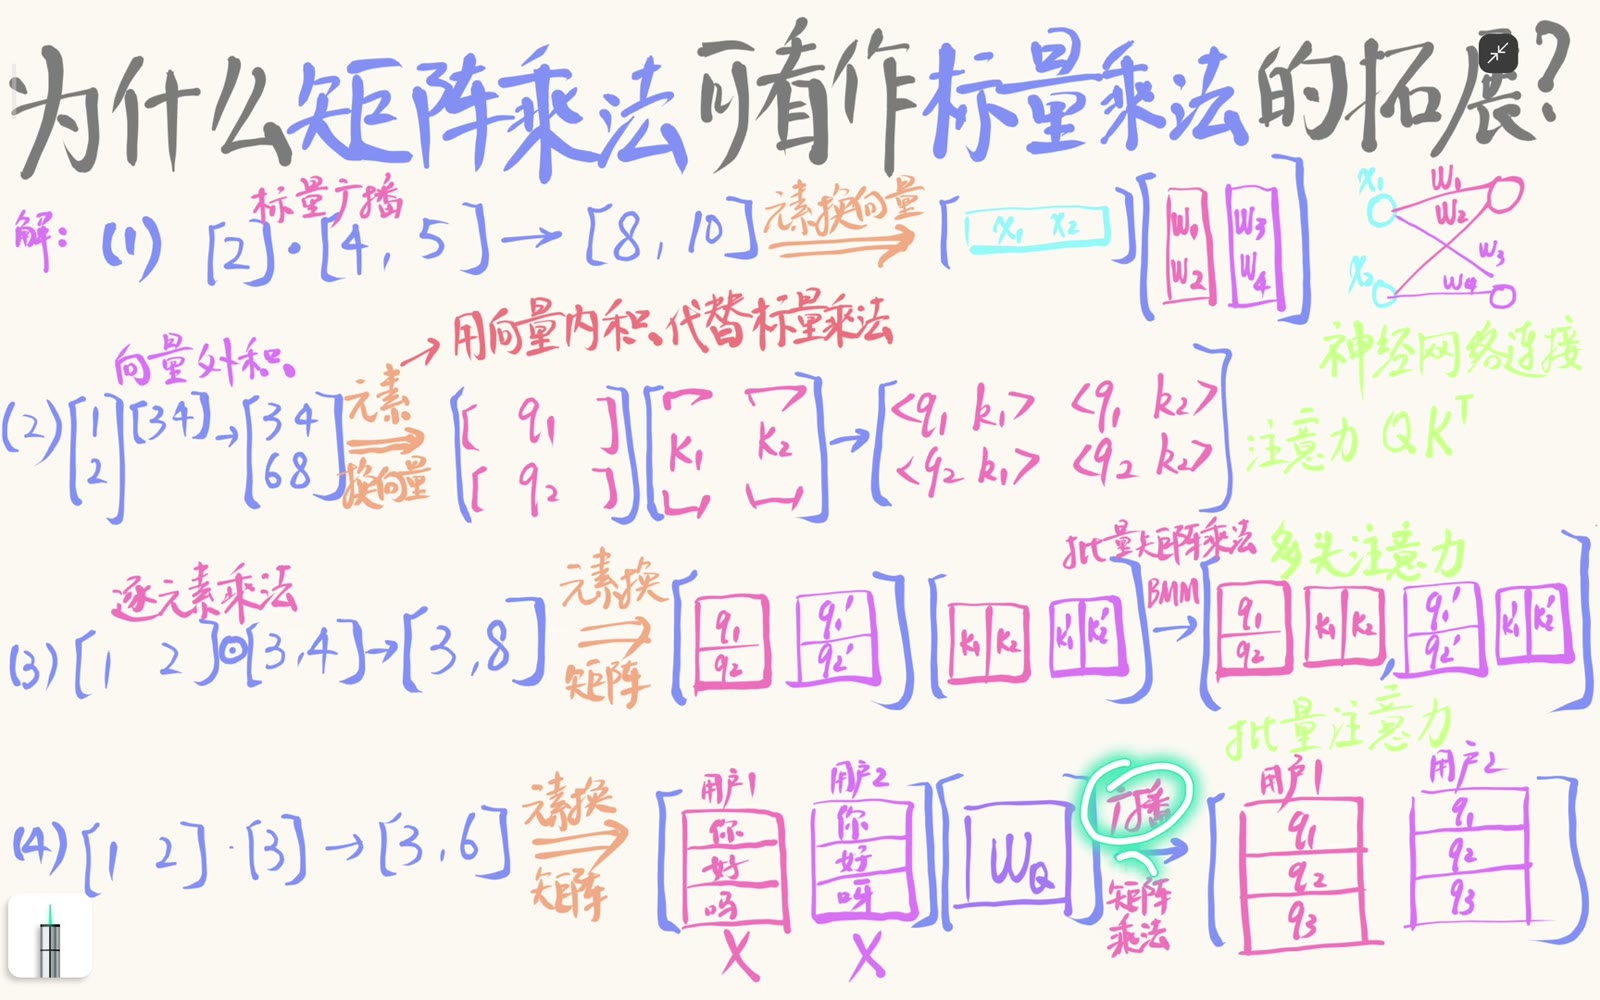 为什么矩阵乘法可看作标量乘法的拓展?
解: (1) 标量广播
[2]·[4, 5] → [8, 10] 元素换向量 [x₁ x₂] [w₁ w₂ w₃ w₄]
x₁ x₂ w₁ w₂ w₃ w₄
神经网络连接
→ 用向量内积代替标量乘法
向量外积
(2) [1 2] [3 4] → [3 4 6 8] 元素换向量 [[q₁] [q₂]] [k₁ k₂] → [<q₁ k₁> <q₁ k₂> <q₂ k₁> <q₂ k₂>]
注意力 QKᵀ
逐元素乘法
(3) [1 2]⊙[3,4] → [3,8] 元素换矩阵 [q₁ q₂ q₁' q₂'] [k₁ k₂ k₁' k₂'] 批量矩阵乘法 BMM → [q₁ q₂ k₁ k₂, q₁' q₂' k₁' k₂']
多头注意力
批量注意力
(4) [1 2]·[3] → [3,6] 元素换矩阵
用户1 你 好 吗 X
用户2 你 好 呀 X
W_Q
广播 → 矩阵乘法
用户1 q₁ q₂ q₃
用户2 q₁ q₂ q₃